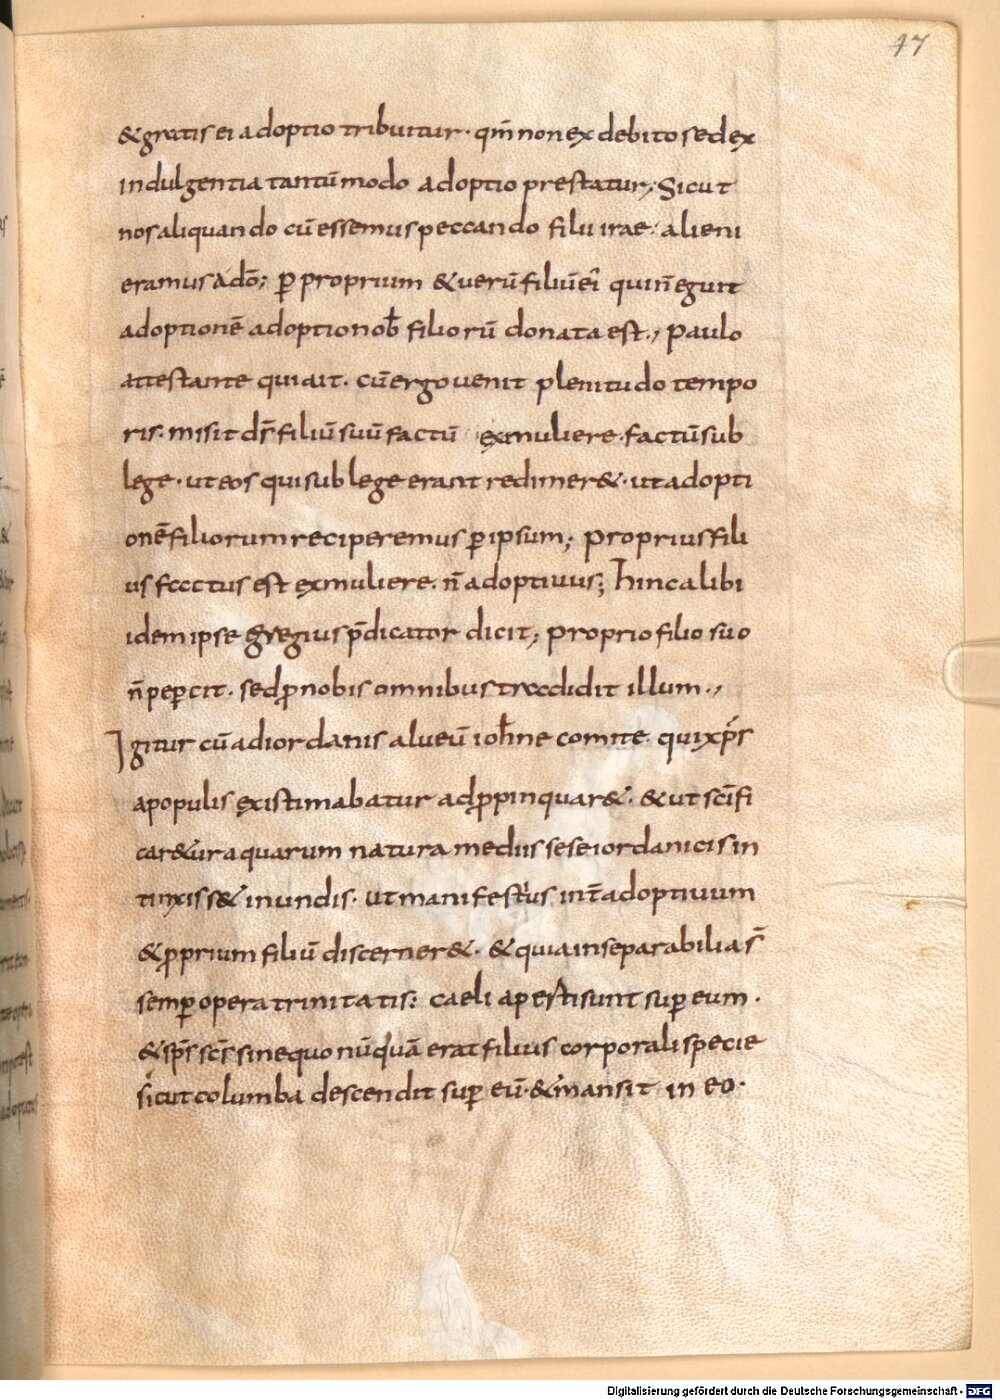 47
& gratis ei adoptio tribuitur · qm̄ non ex debito sed ex
indulgentia tantū modo adoptio prestatur; Sicut
nos aliquando cū essemus peccando filii irae · alieni
eramus a dō; ꝑ proprium & uerū filiū ei qui n̄ eguit
adoptionē adoptio nob̄ filiorū donata est ., Paulo
attestante qui ait · cū ergo uenit plenitudo tempo
ris · misit ds̄ filiū suū factū ex muliere · factū sub
lege · ut eos qui sub lege erant redimer& · ut adopti
onē filiorum reciperemus ꝑ ipsum; Proprius fili
us factus est ex muliere · n̄ adoptiuus; hinc alibi
idem ipse gregius p̄dicator dicit; Proprio filio suo
n̄ peꝑcit · sed ꝓ nobis omnibus tradidit illum .,
Igitur cū ad iordanis alueū ioh̄ne comite · qui xp̄s
a populis existimabatur adꝓpinquar& · & ut sc̄ifi
car&ur aquarum natura medius sese iordanicis in
tinxiss& in undis · ut manifestius int̄ adoptiuum
& ꝓprium filiū discerner& · & quia inseparabilia s̄
semꝑ opera trinitatis: caeli aꝑti sunt suꝑ eum ·
& sps̄ scs̄ sine quo nūquā erat filius corporali specie
sicut columba descendit suꝑ eū · & mansit in eo ·
Digitalisierung gefördert durch die Deutsche Forschungsgemeinschaft - DFG